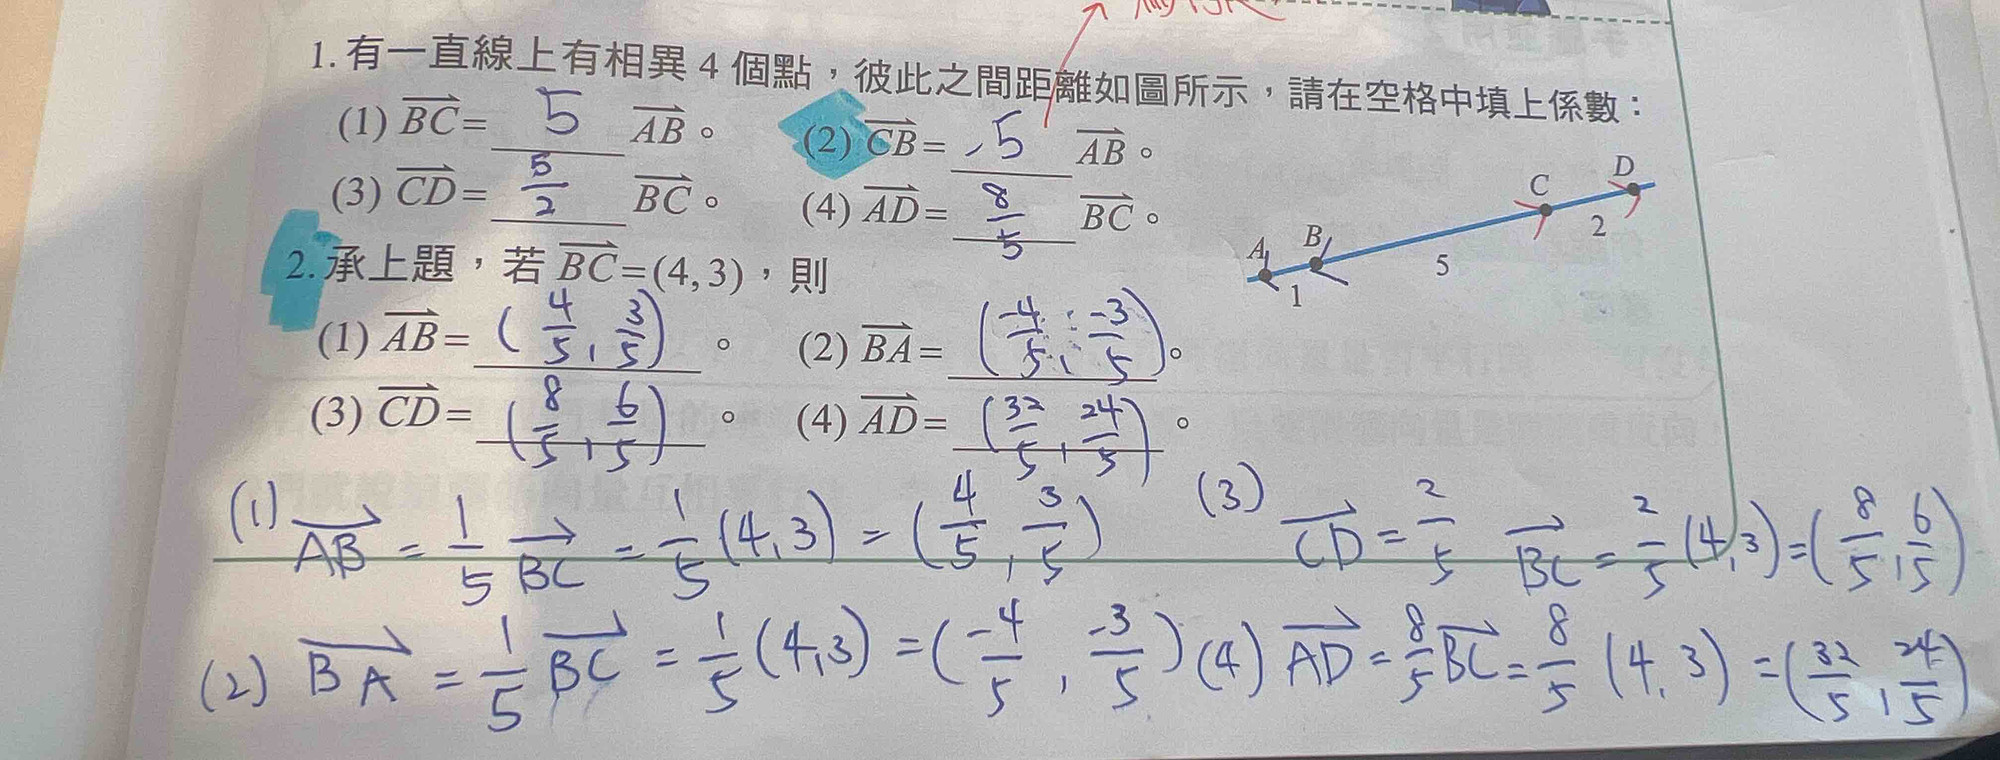 1. 有一直線上有相異 4 個點，彼此之間距離如圖所示，請在空格中填上係數：
(1) $\overrightarrow{BC}$ = 5 $\overrightarrow{AB}$。 (2) $\overrightarrow{CB}$ = -5 $\overrightarrow{AB}$。
(3) $\overrightarrow{CD}$ = $\frac{5}{2}$ $\overrightarrow{BC}$。 (4) $\overrightarrow{AD}$ = $\frac{8}{5}$ $\overrightarrow{BC}$。
A B C D
1 5 2
2. 承上題，若 $\overrightarrow{BC}$ = (4, 3)，則
(1) $\overrightarrow{AB}$ = ($\frac{4}{5}$, $\frac{3}{5}$)。 (2) $\overrightarrow{BA}$ = ($\frac{-4}{5}$, $\frac{-3}{5}$)。
(3) $\overrightarrow{CD}$ = ($\frac{8}{5}$, $\frac{6}{5}$)。 (4) $\overrightarrow{AD}$ = ($\frac{32}{5}$, $\frac{24}{5}$)。
(1) $\overrightarrow{AB}$ = $\frac{1}{5}$ $\overrightarrow{BC}$ = $\frac{1}{5}$ (4, 3) = ($\frac{4}{5}$, $\frac{3}{5}$) (3) $\overrightarrow{CD}$ = $\frac{2}{5}$ $\overrightarrow{BC}$ = $\frac{2}{5}$ (4, 3) = ($\frac{8}{5}$, $\frac{6}{5}$)
(2) $\overrightarrow{BA}$ = $\frac{1}{5}$ $\overrightarrow{BC}$ = $\frac{1}{5}$ (4, 3) = ($\frac{-4}{5}$, $\frac{-3}{5}$) (4) $\overrightarrow{AD}$ = $\frac{8}{5}$ $\overrightarrow{BC}$ = $\frac{8}{5}$ (4, 3) = ($\frac{32}{5}$, $\frac{24}{5}$)